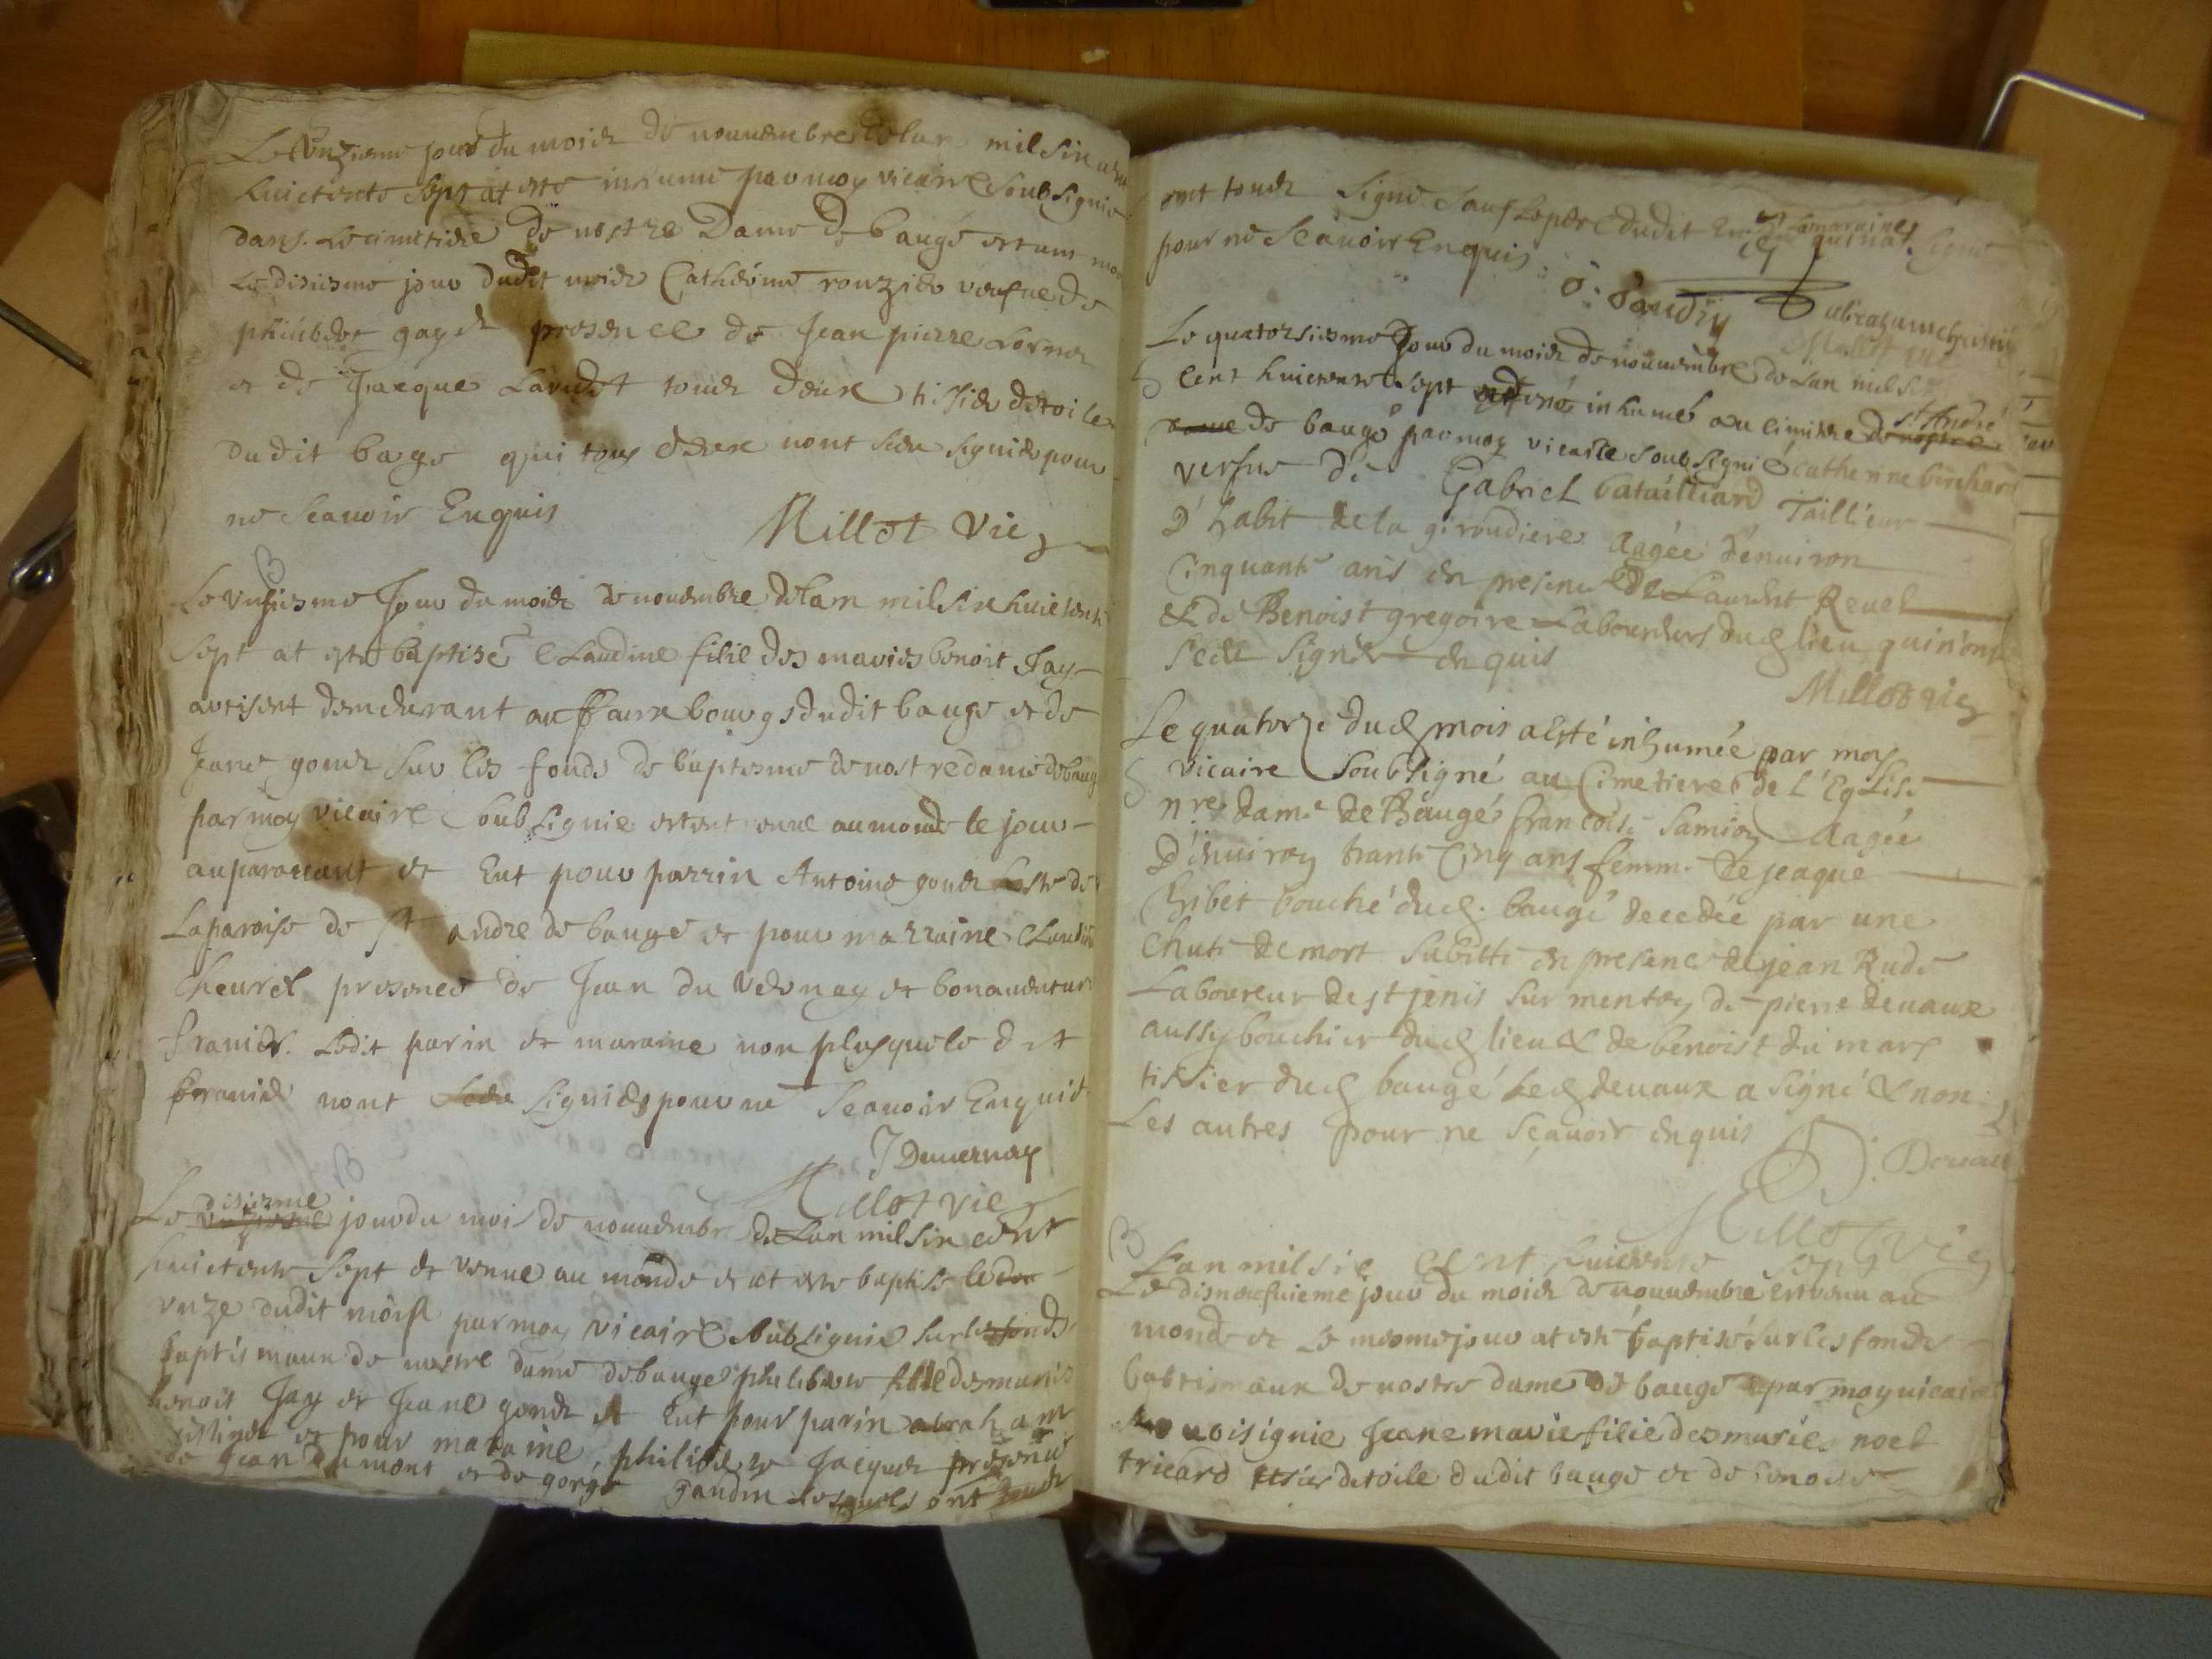 Le Vnziesme jour du mois de nouuembre de lan mil six cent
huictente sept at esté inhumé par moy vicaire soub signie
dans le cimetiere de nostre Dame de baugé estant mor
Le disiesme jour dudit mois Catherine rouzier veufue de
philibert gay presence de Jean pierre Lorner
et de Jacque Landet tous deux tissier de toile
dudit bage qui tous deux nont sceu signier pour
ne scauoir Enquis
Millot Vic
B
Le Vnsiesme Jour du mois de nouembre de lan mil six huictente
sept at esté baptisé Claudine filie des maries benoit Jay
artisent demeurant au ffaux bourgs dudit bauge et de
Jeane goude sur les fonds de baptesme de nostre dame de baug
par moy vicaire soub signie estent venue au monde le jour
auparauant et Eut pour parrin Antoine goude hoste de
La paroise de st andre de baugé et pour marraine Claudine
Cheurel presence de Jean du Vernay et bonauenture
franier. Ledit parin et maraine non plus que le dit
franier nont sceu signier pour ne Scauoir Enquit
J Deuuernay
Millot vic
B
Le disiesme jour du mois de nouuembre de Lan mil six cent
huictente sept et venue au monde et at esté baptisé le
vnze dudit mois par moy vicaire soub signie sur les fonds
baptismaux de nostre dame de bauge philiberte filie des maries
benoit Jay et Jeane goude et Eut pour parin abraham
et pour maraine philiberte Jacquet presence
de Jean dumont et de gorge gaudin lesquels ont tous
ont tous signé sauf dudit la maraine
pour ne Scauoir Enquis
G. Gaudin
abraham
Millot vic
Le quatorsiesme Jour du mois de nouuembre de Lan mil six
S cent huictente sept at esté inhumé au cimitiere de nostre st André
dame de baugé par moy vicaire soub signié catherine
vefue de Gabriel bataillard Taillieur
D'habit de la giroudiere Aagée d'enuiron
Cinquante ans en presence de Laurent Reuel
& de Benoist gregoire Laboureurs dud lieu qui n'ont
sceu signer enquis
Millot vic
Le quatorze dud mois a esté inhumée par moy
S vicaire Soubsigné au Cimetiere de l'Eglise
nre dame de Baugé francoise Samion Aagée
D'enuiron trante Cinq ans femme de jeaque
Chibet bouché dud. baugé decedée par une
chute de mort subitte en presence de jean Rude
Laboureur de st jenis sur menton de pierre deuaux
aussy bouchier dud lieu & de benoist du mars
tissier dud baugé Led deuaux a signé & non
Les autres pour ne sçauoir enquis
D. Deuaux
Millot vic
B
Lan mil sie cent huictente sept
Le disneufuieme jour du mois de nouuembre est venu au
monde et Le mesme jour at esté baptisé sur les fonds
batismaux de nostre dame de baugé par moy vicaire
soubsignie Jeane marie filie des maries noel
tricard tisier de toile dudit baugé et de benoise